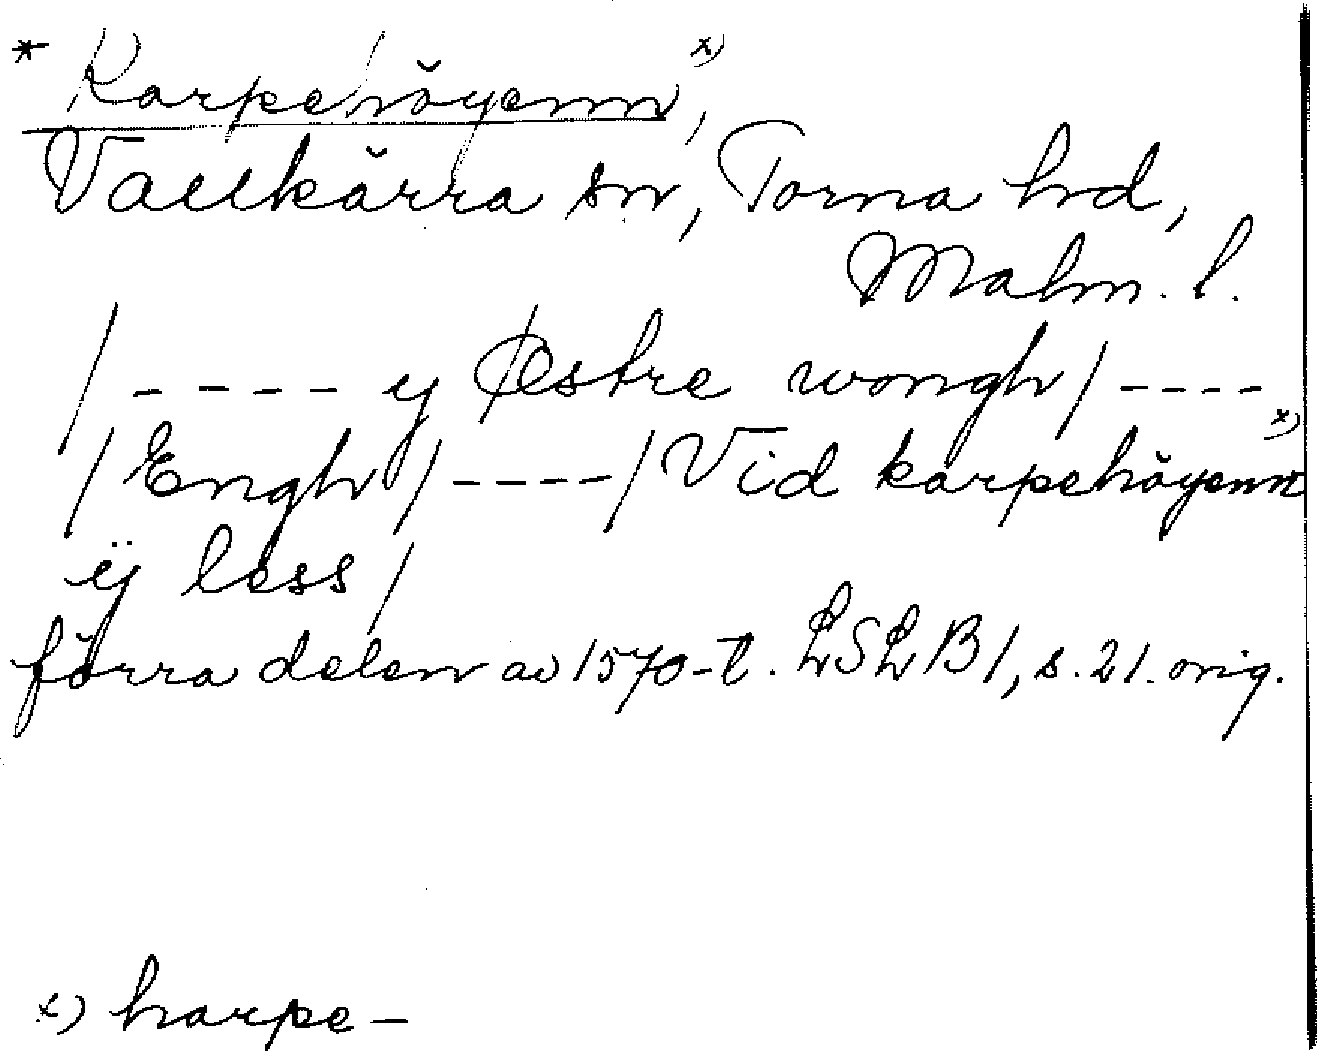 * Karpehöyenn x),
Vallkärra sn, Torna hd,
Malm. l.
/ - - - - y Østre wongh / - - - -
/ Engh / - - - - / Vid karpehöyenn x)
ÿ less /
förra delen av 1570-t. LSLB1, s. 21. orig.
x) harpe -